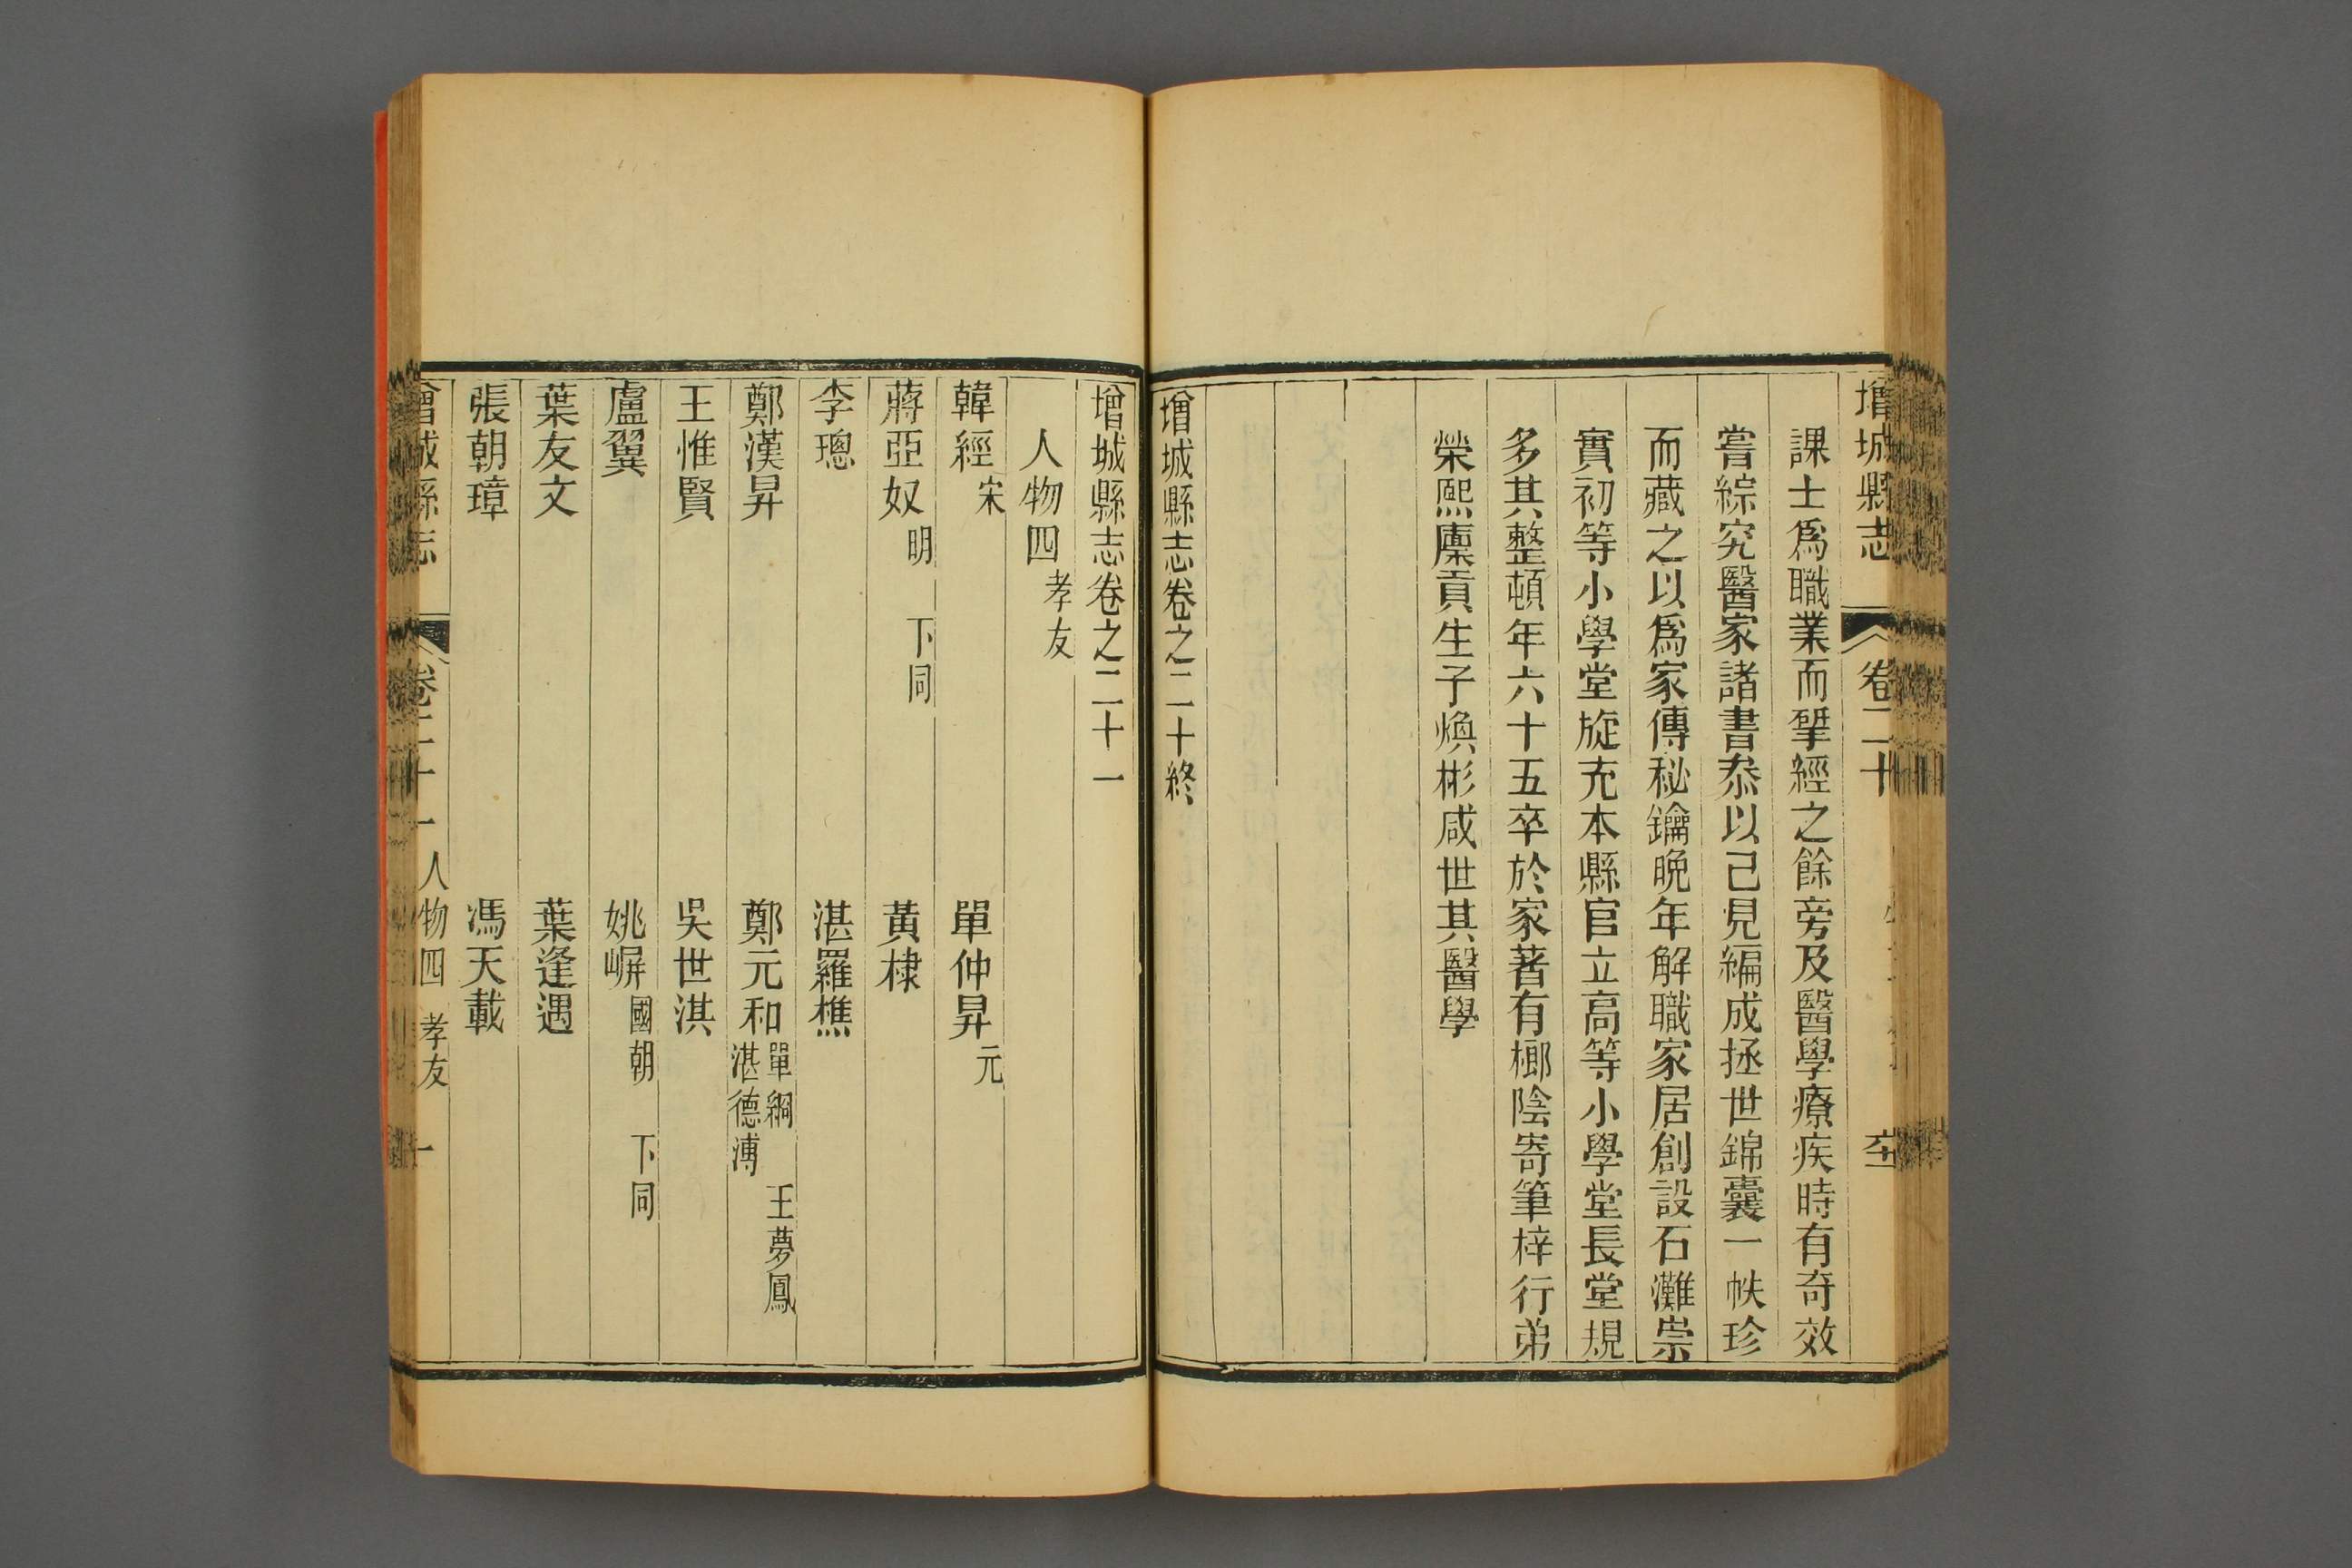 增城縣志 卷二十
課士爲職業而揅經之餘旁及醫學療疾時有奇效
嘗綜究醫家諸書叅以己見編成拯世錦囊一帙珍
而藏之以爲家傳秘鑰晚年解職家居創設石灘崇
實初等小學堂旋充本縣官立高等小學堂長堂規
多其整頓年六十五卒於家著有榔陰寄筆梓行弟
榮熙廩貢生子煥彬咸世其醫學
增城縣志卷之二十終
增城縣志卷之二十一
人物四 孝友
韓經 宋 單仲昇 元
蔣亞奴 明 下同 黃棣
李璁 湛羅樵
鄭漢昇 鄭元和 單綱 王夢鳳 湛德溥
王惟賢 吳世淇
盧翼 姚㟓 國朝 下同
葉友文 葉逢遇
張朝璋 馮天載
增城縣志 卷二十一 人物四 孝友 一